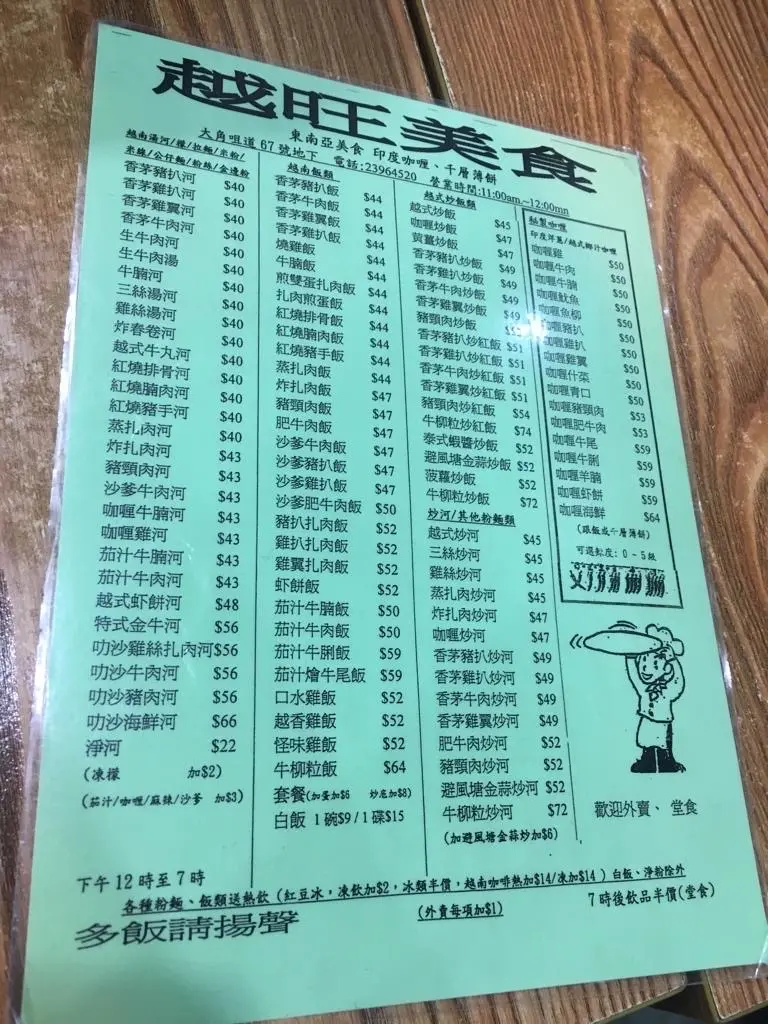 越旺美食
東南亞美食 印度咖喱、千層薄餅
大角咀道 67 號地下 電話:23964520 營業時間:11:00am.~12:00mn
越南湯河/檬/拉麵/米粉/
米線/公仔麵/粉絲/金邊粉
香茅豬扒河 $40
香茅雞扒河 $40
香茅雞翼河 $40
香茅牛肉河 $40
生牛肉河 $40
生牛肉湯 $40
牛腩河 $40
三絲湯河 $40
雞絲湯河 $40
炸春卷河 $40
越式牛丸河 $40
紅燒排骨河 $40
紅燒腩肉河 $40
紅燒豬手河 $40
蒸扎肉河 $40
炸扎肉河 $43
豬頸肉河 $43
沙爹牛肉河 $43
咖喱牛腩河 $43
咖喱雞河 $43
茄汁牛腩河 $43
茄汁牛肉河 $43
越式虾餅河 $48
特式金牛河 $56
叻沙雞絲扎肉河 $56
叻沙牛肉河 $56
叻沙豬肉河 $56
叻沙海鮮河 $66
淨河 $22
(凍檬 加$2)
(茄汁/咖喱/麻辣/沙爹 加$3)
越南飯類
香茅豬扒飯 $44
香茅牛肉飯 $44
香茅雞翼飯 $44
香茅雞扒飯 $44
燒雞飯 $44
牛腩飯 $44
煎雙蛋扎肉飯 $44
扎肉煎蛋飯 $44
紅燒排骨飯 $44
紅燒腩肉飯 $44
紅燒豬手飯 $44
蒸扎肉飯 $44
炸扎肉飯 $47
豬頸肉飯 $47
肥牛肉飯 $47
沙爹牛肉飯 $47
沙爹豬扒飯 $47
沙爹雞扒飯 $47
沙爹肥牛肉飯 $50
豬扒扎肉飯 $52
雞扒扎肉飯 $52
雞翼扎肉飯 $52
虾餅飯 $52
茄汁牛腩飯 $50
茄汁牛肉飯 $50
茄汁牛脷飯 $59
茄汁燴牛尾飯 $59
口水雞飯 $52
越香雞飯 $52
怪味雞飯 $52
牛柳粒飯 $64
套餐(加蛋加$6 炒底加$8)
白飯 1 碗$9/1 碟$15
越式炒飯類
越式炒飯 $45
咖喱炒飯 $47
黃薑炒飯 $47
香茅豬扒炒飯 $49
香茅雞扒炒飯 $49
香茅牛肉炒飯 $49
香茅雞翼炒飯 $49
豬頸肉炒飯
香茅豬扒炒紅飯 $51
香茅雞扒炒紅飯 $51
香茅牛肉炒紅飯 $51
香茅雞翼炒紅飯 $51
豬頸肉炒紅飯 $54
牛柳粒炒紅飯 $74
泰式蝦醬炒飯 $52
避風塘金蒜炒飯 $52
菠蘿炒飯 $52
牛柳粒炒飯 $72
炒河/其他粉麵類
越式炒河 $45
三絲炒河 $45
雞絲炒河 $45
蒸扎肉炒河 $45
炸扎肉炒河 $47
咖喱炒河 $47
香茅豬扒炒河 $49
香茅雞扒炒河 $49
香茅牛肉炒河 $49
香茅雞翼炒河 $49
肥牛肉炒河 $52
豬頸肉炒河 $52
避風塘金蒜炒河 $52
牛柳粒炒河 $72
(加避風塘金蒜炒加$6)
秘製咖喱
印度洋蔥/越式椰汁咖喱
咖喱雞 $50
咖喱牛肉 $50
咖喱牛腩 $50
咖喱魷魚 $50
咖喱魚柳 $50
咖喱豬扒 $50
咖喱雞扒 $50
咖喱雞翼 $50
咖喱什菜 $50
咖喱青口 $50
咖喱豬頸肉 $53
咖喱肥牛肉 $53
咖喱牛尾 $59
咖喱牛脷 $59
咖喱羊腩 $59
咖喱虾餅 $59
咖喱海鮮 $64
(跟飯或千層薄餅)
可選辣度: 0 ~ 5 級
歡迎外賣、堂食
下午 12 時至 7 時
各種粉麵、飯類送熱飲 (紅豆冰，凍飲加$2，冰類半價，越南咖啡熱加$14/凍加$14 ) 白飯、淨粉除外
多飯請揚聲
(外賣每項加$1)
7 時後飲品半價(堂食)